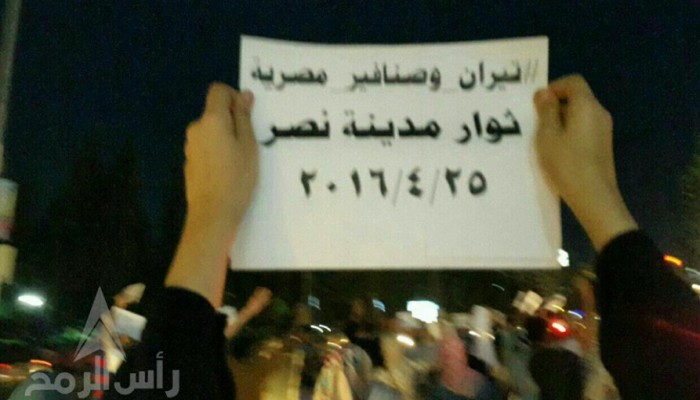 #تيران وصنافير مصرية
ثوار مدينة نصر
٢٠١٦/٤/٢٥
رأس الرمح